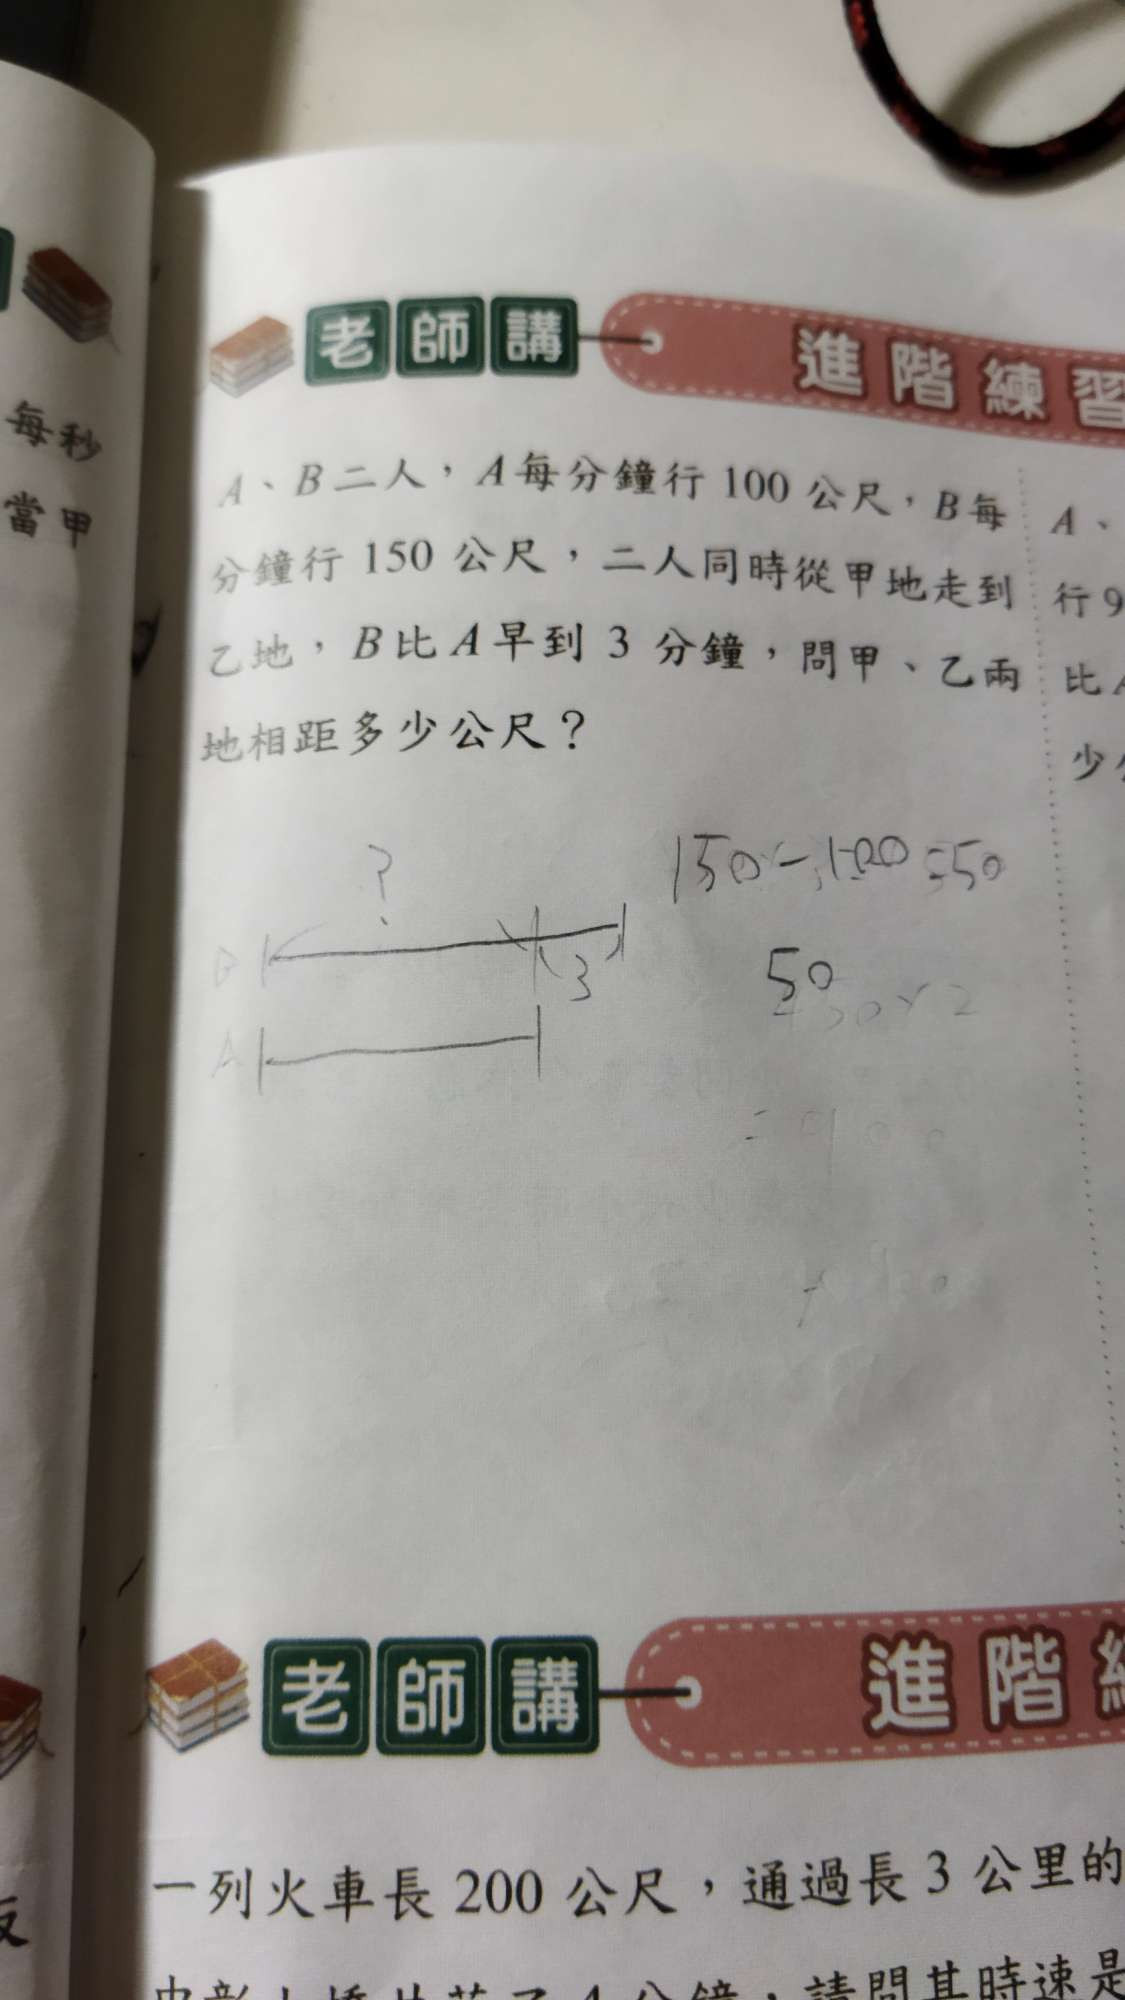 每秒
當甲
老師講
進階練習
A、B二人，A每分鐘行100公尺，B每
分鐘行150公尺，二人同時從甲地走到
乙地，B比A早到3分鐘，問甲、乙兩
地相距多少公尺？
A、
行9
比A
少公
?
150-100=50
B
3
50
A
老師講
進階
一列火車長200公尺，通過長3公里的